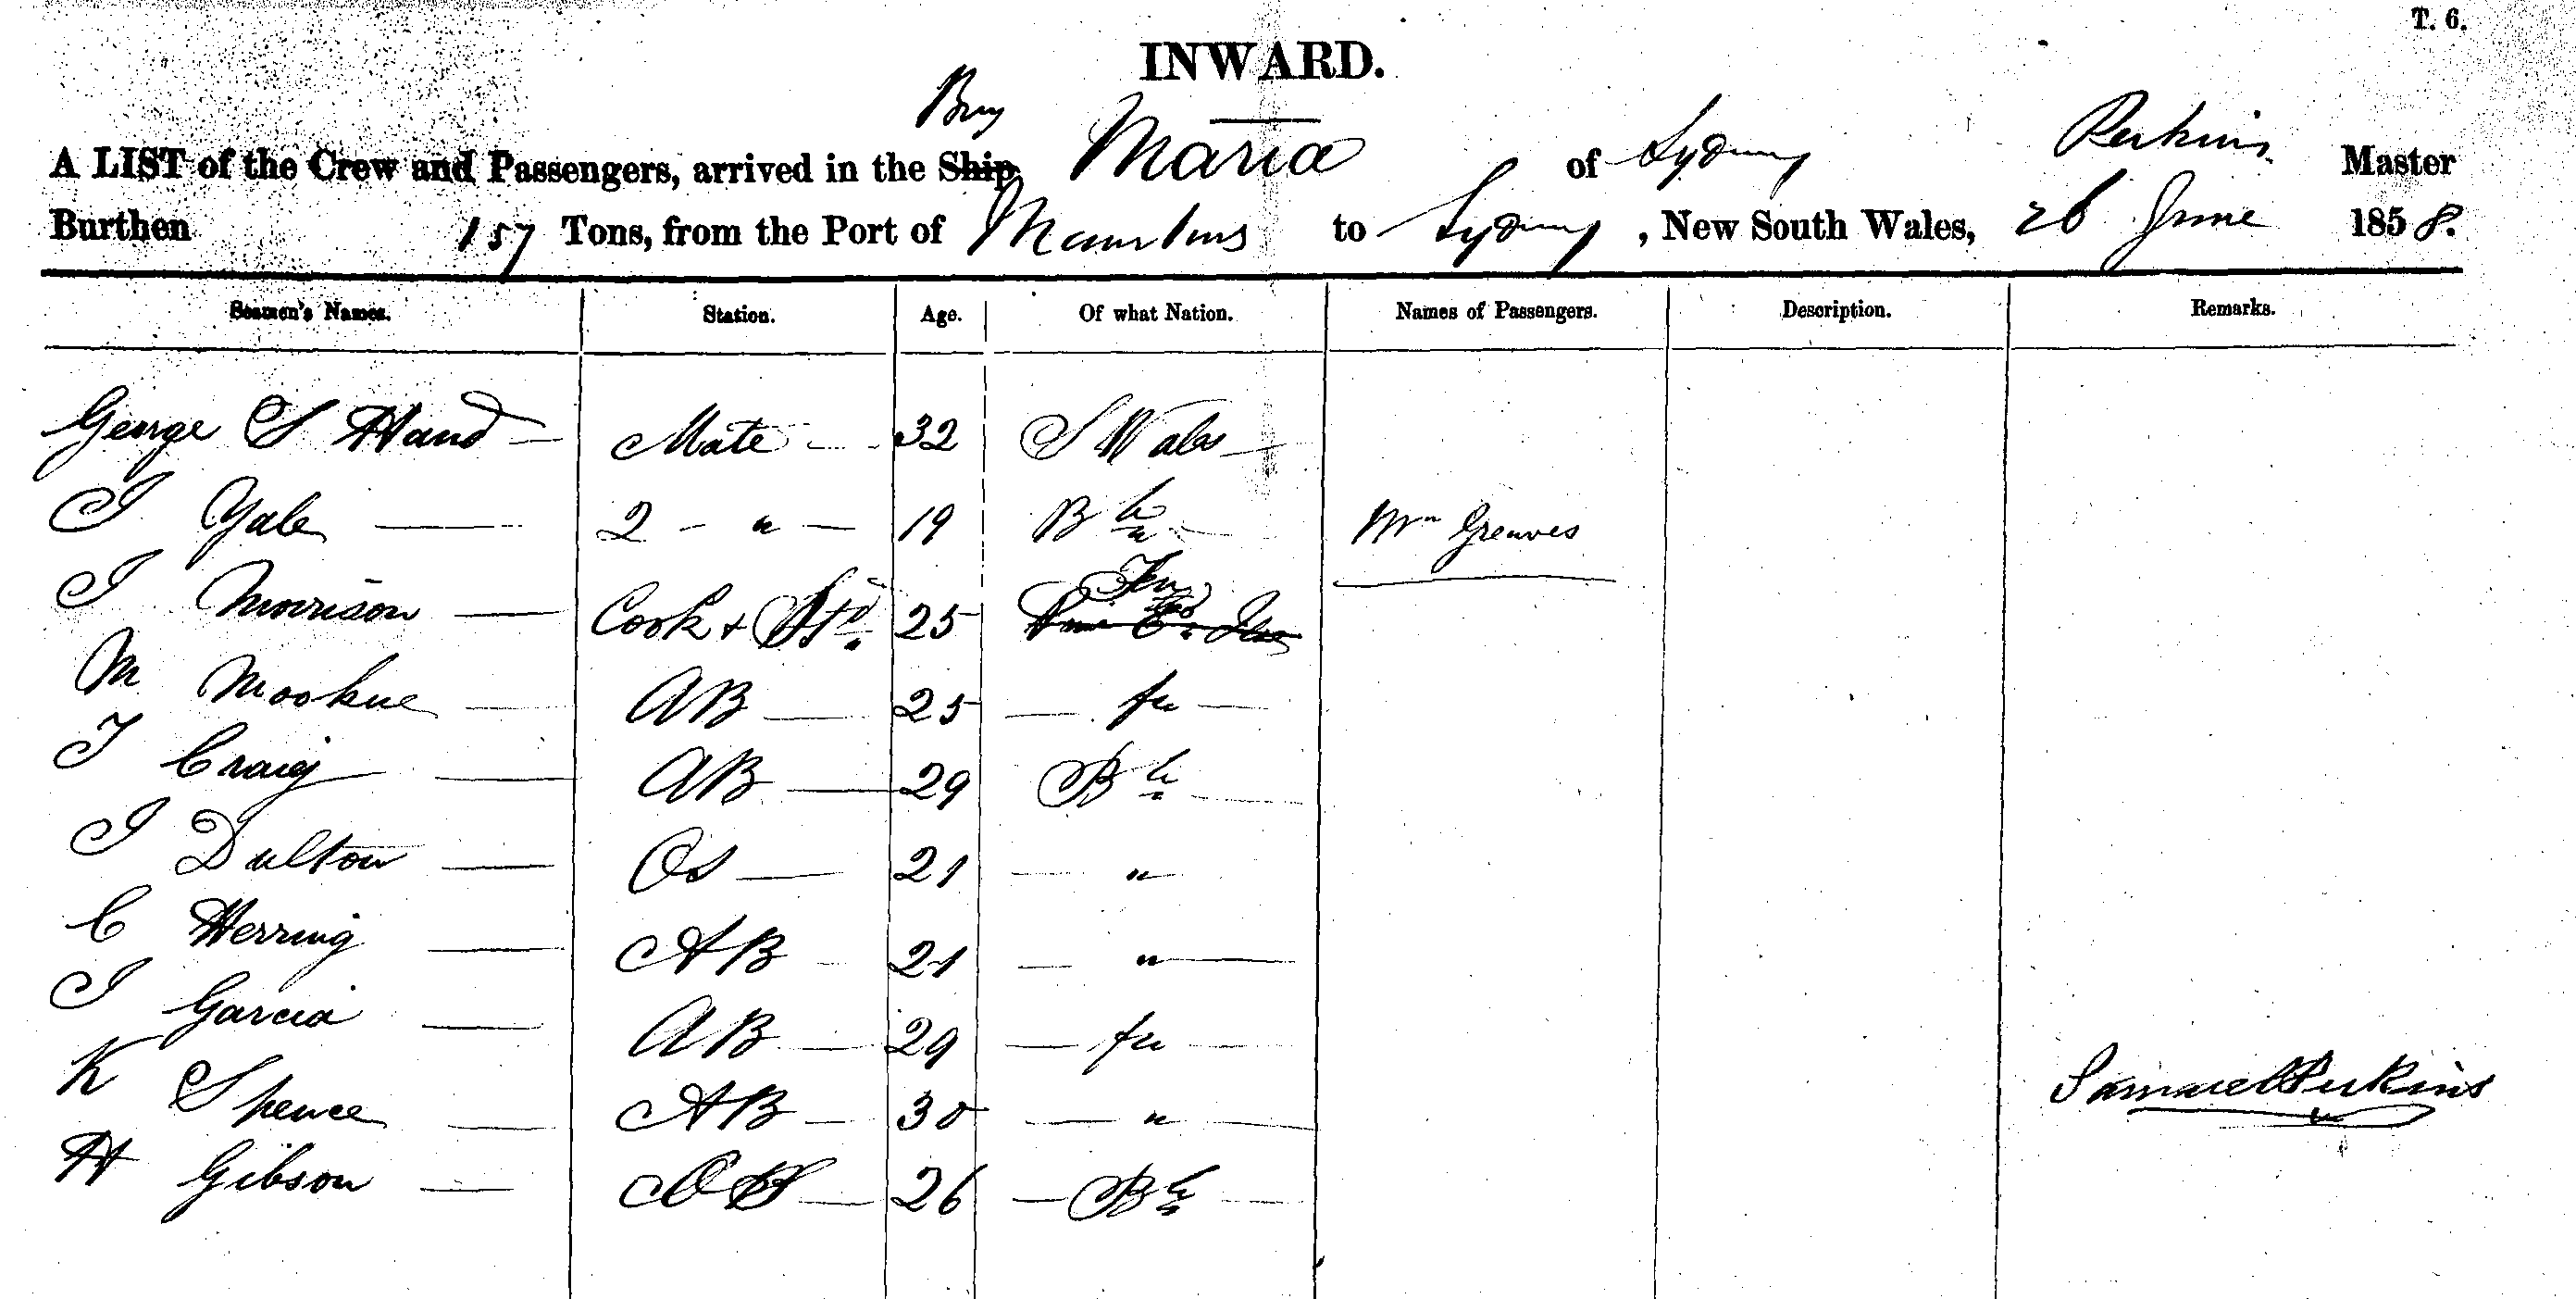 T. 6.
INWARD.
A LIST of the Crew and Passengers, arrived in the Ship Brig Maria of Sydney Perkins Master
Burthen 157 Tons, from the Port of Mauritius to Sydney, New South Wales, 26 June 1858.
Seamen's Names. Station. Age. Of what Nation. Names of Passengers. Description. Remarks.
George S Hand Mate 32 S Wales
J Yale 2 - " - 19 Bh Mrs Greaves
J Morrison Cook & Std 25
M 25 AB fn
J Craig AB 29 Bh
J Dulton OS 21 "
C Herring AB 21 "
J Garcia AB 29 fn
K Spence AB 30 "
H Gibson OS 26 Bh
Samuel Perkins